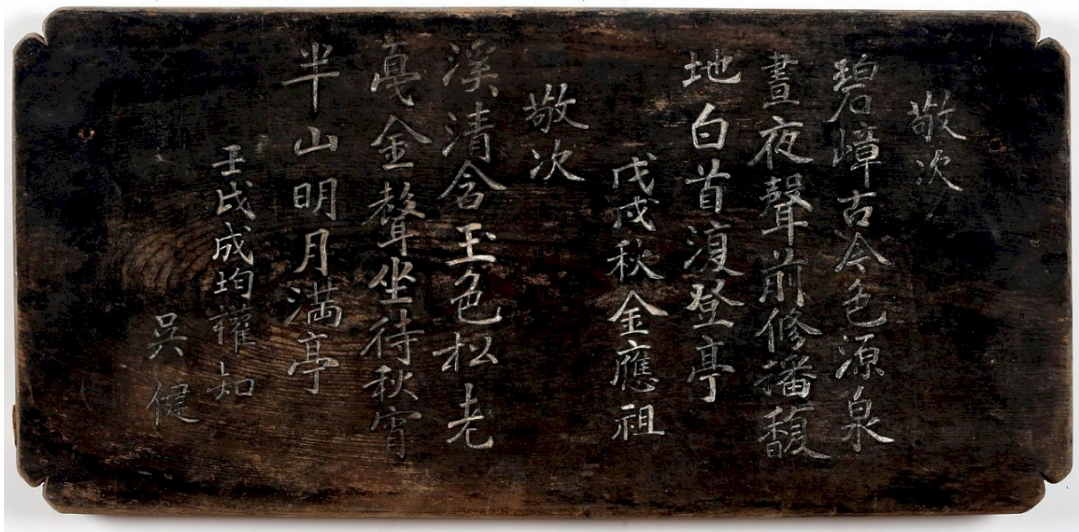 敬次
碧嶂古今色源泉
晝夜聲前修播馥
地白首復登亭
戊戌秋金應祖
敬次
溪清含玉色松老
戞金聲坐待秋宵
半山明月満亭
壬戌成均權知
吳健